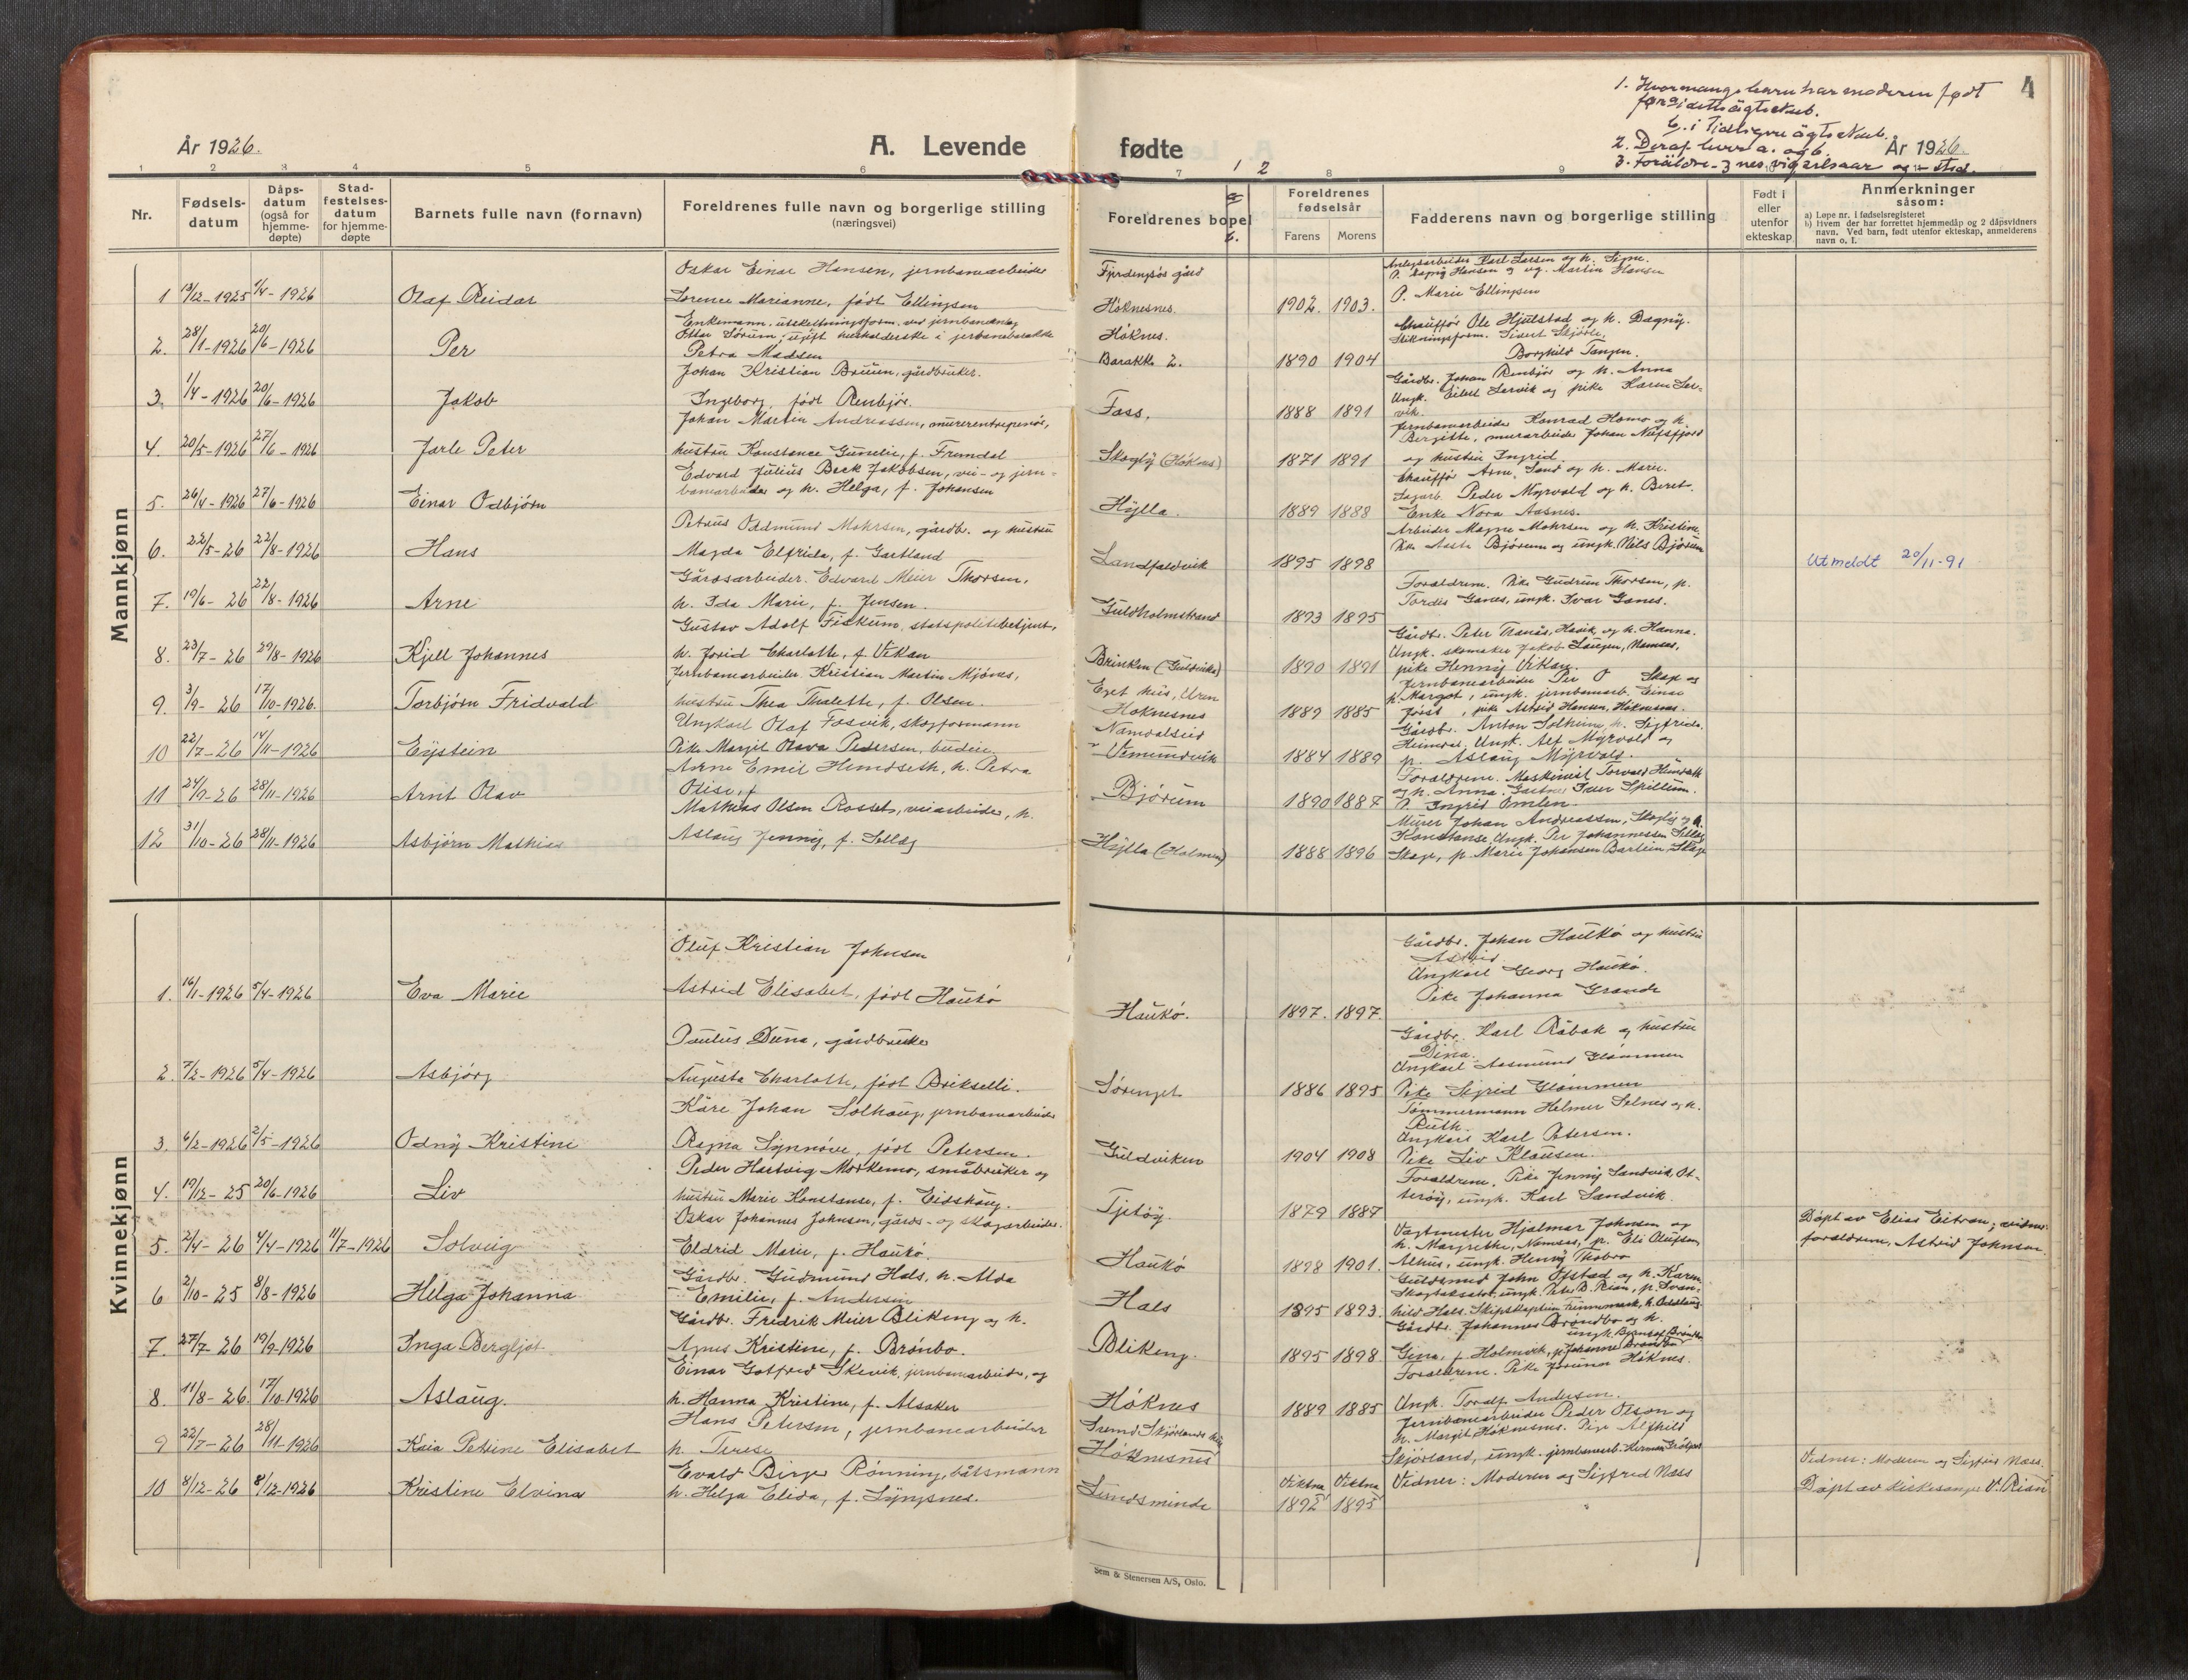 4
1. Hvormange barn har moderen født
før a i dette ägteskab.
b. i tidligere ägteskab.
2. Deraf lever a. og b.
3. Forældre-3 nes vigselsaar og - sted.
År 1926.
A. Levende fødte
År 1926.
1 2 3 4 5 6 7 1 2 8 9
Nr.
Fødsels-
datum
Dåps-
datum
(også for
hjemme-
døpte)
Stad-
festelses-
datum
for hjemme-
døpte
Barnets fulle navn (fornavn)
Foreldrenes fulle navn og borgerlige stilling
(næringsvei)
Foreldrenes bopel
a
b.
Foreldrenes
fødselsår
Farens Morens
Fadderens navn og borgerlige stilling
Født i
eller
utenfor
ekteskap
Anmerkninger
såsom:
a) Løpe nr. i fødselsregisteret
b) Hvem der har forrettet hjemmedåp og 2 dåpsvidners
navn. Ved barn, født utenfor ekteskap, anmelderens
navn o. l.
Mannkjønn
1 13/12-1925 1/4-1926 Olaf Reidar
Oskar Einar Hansen, jernbanearbeider
Lorence Marianne, født Ellingsen
Høknesnes. 1902. 1903.
Anlegsarbeider Karl Larsen og h. Signe.
Martin Hansen
P. Marie Ellingsen
2. 28/1-1926 20/6-1926 Per
Enkemann
Ottar Sørum, ugift husholderske i jernbanebarakke
Petra Madsen
Høknes.
Barakke 2. 1890 1904
Chauffør Ole Hjulstad og h. Dagny.
Stikningsform. Sivert Skjørle.
Borghild Tangen.
3. 1/4-1926 20/6-1926 Jakob
Johan Kristian Bruun, gårdbruker.
Ingeborg, født Renbjør.
Foss. 1888 1891
Gårdbr. Johan Renbjør og h. Anna
Ungk. Eilert Servik og pike Karen Ser-
vik.
4. 20/5-1926 27/6-1926 Jarle Peter
Johan Martin Andreassen, murerentreprenør,
hustru Konstance Gunelie, f. Fremdal
Skogly (Høknes) 1871 1891
Jernbanearbeider Konrad Homo og h.
Bergitte, murarbeider Johan Nufsfjord
og hustru Ingrid.
5. 26/4-1926 27/6-1926 Einar Odbjørn
Edvard Julius Beck Jakobsen, vei- og jern-
banearbeider og h. Helga, f. Johansen
Hylla. 1889 1888
Chauffør Arne Sand og h. Marie.
Sagarb. Peder Myrvold og h. Beret.
Enke Nora Aasnes.
6. 22/5-26 22/8-1926 Hans
Petrus Oddmund Mohrsen, gårdbr. og hustru
Magda Elfrida, f. Gartland
Landfaldvik 1895 1898
Arbeider Magne Mohrsen og h. Kristine
Pike Aasta Bjørum og ungk. Nils Bjørum
Utmeldt 20/11-91
7. 19/6-26 22/8-1926 Arne
Gårdsarbeider. Edvard Meier Thorsen,
h. Ida Marie, f. Jensen.
Guldholmstrand 1893 1895
Foreldrene. Pike Gudrun Thorsen, p.
Tordis Ganes, ungk. Ivar Ganes.
8. 23/7-26 29/8-1926 Kjell Johannes
Gustav Adolf Fiskum, statspolitibetjent,
h. Jorid Charlotte, f. Vikan
Brinken (Guldvika) 1890 1891
Gårdbr. Peter Tranås, Havik, og h. Hanna.
Ungk. skomaker Jakob Laugen, Namsos,
pike Henny Vikan.
9. 3/9-26 17/10-1926. Torbjørn Fridvald
Jernbanearbeider Kristian Martin Mjønes,
hustru Thea Thalette, f. Olsen.
Eget hus, Uren
Høknesnes 1889 1885
Jernbanearbeider Per O Skage og
h. Margot, ungk. jernbanearb. Einar
pike Astrid Hansen, Høknesnes.
10 22/7-26 14/11-1926 Eystein
Ungkarl Olaf Fosvik, skogformann
Pike Margit Olava Pedersen, budeie
Namdalseid
Vemundvik 1884 1889
Gårdbr. Anton Solheim, h. Sigfrida.
Ungk. Alf Myrvold og
p. Aslaug Myrvold.
11 24/9-26 28/11-1926 Arnt Olav
Arne Emil Hundseth, h. Petra
Olise, f
Bjørum 1890 1887
Foreldrene. Maskinist Torvald Hundseth
og h. Anna. Gartner Iver Spillum.
P. Ingrid Omlen.
12 31/10-26 28/11-1926 Asbjørn Mathias
Mathias Olsen Rosset, veiarbeider, h.
Aslaug Jenny, f. Selleg
Hylla (Holmen) 1888 1896
Murer Johan Andreassen, Skogly og h.
Konstanse. Ungk. Per Johannessen Selleg
Skage, p. Marie Johansen Barlien Skage
Kvinnekjønn
1. 16/1-1926 5/4-1926 Eva Marie
Oluf Kristian Johnsen
Astrid Elisabet, født Haukø
Haukø. 1897. 1897.
Gårdbr. Johan Haukø og hustru
Astrid
Ungkarl Georg Haukø.
Pike Johanna Grande
2. 7/2-1926 5/4-1926 Asbjørg
Paulus Duna, gårdbruker
Augusta Charlotte, født Brikselli.
Sørenget 1886 1895
Gårdbr. Karl Råbak og hustru
Dina.
Ungkarl Aasmund Glømmen
Pike Sigrid Glømmen
3. 6/2-1926 2/5-1926 Odny Kristine
Kåre Johan Solhaug, jernbanearbeider
Ragna Synnøve, født Petersen.
Guldviken 1904 1908
Tømmermann Helmer Selnes og h.
Ruth.
Ungkarl Karl Petersen.
Pike Liv Klausen.
4. 19/12-25 20/6-1926 Liv
Peder Hartvig Morkemo, småbruker og
hustru Marie Konstanse, f. Eidshaug.
Tjetøy. 1879 1887
Foreldrene. Pike Jenny Sandvik, Ot-
terøy, ungk. Karl Sandvik.
5. 2/4-26 4/4-1926 11/7-1926 Solveig
Oskar Johannes Johnsen, gårds- og skogarbeider.
Eldrid Marie, f. Haukø.
Haukø 1898 1901.
Vagtmester Hjalmar Johnsen og
h. Margrethe, Namsos, p. Eli Olufsen
Alhus, ungk. Henry Thobro
Døpt av Elias Eitran; vidner
foreldrene, Astrid Johnsen.
6 2/10-25 8/8-1926 Helga Johanna
Gårdbr. Gudmund Hals, h. Alda
Emilie, f. Andersen
Hals 1895 1893.
Guldsmed John Ofstad og h. Karen,
Skogtaksator, ungk. Peter B. Rian, p. Svan-
hild Hals. Skipskaptein Finnemark, h. Oddlaug.
7. 27/7-26 19/9-1926 Inga Bergljot
Gårdbr. Fredrik Meier Blikeng og h.
Agnes Kristine, f. Brønbo.
Blikeng. 1895 1898
Gårdbr. Johannes Brøndbo og h.
Gina, f. Holmvik, p. Johanne Brøndbo
8. 11/8-26. 17/10-1926 Aslaug.
Einar Gotfred Skevik, jernbanearbeider, og
h. Hanna Kristine, f. Alsaker
Høknes 1889 1885
Foreldrene. Pike Jorunn Høknes.
Ungk. Toralf Andersen.
9 22/7-26 28/11-1926 Kaia Petrine Elisabet
Hans Petersen, jernbanearbeider
h. Terese
Høknesnes
Jernbanearbeider Peder Olson og
h. Margit Høknesnes. Pige Alfhild
Skjørland, ungk. jernbanearb. Herman
10 8/12-26 8/12-1926 Kristine Elvina
Evald Birger Rønning, båtsmann
h. Helga Elida, f. Lyngsnes.
Lundsminde
Viktna Viktna
1892 1895
Vidner: Moderen og Sigfred Næss
Vidner: Moderen og Sigfred Næss.
Døpt av kirkesanger V. Rian
Sem & Stenersen A/S, Oslo.